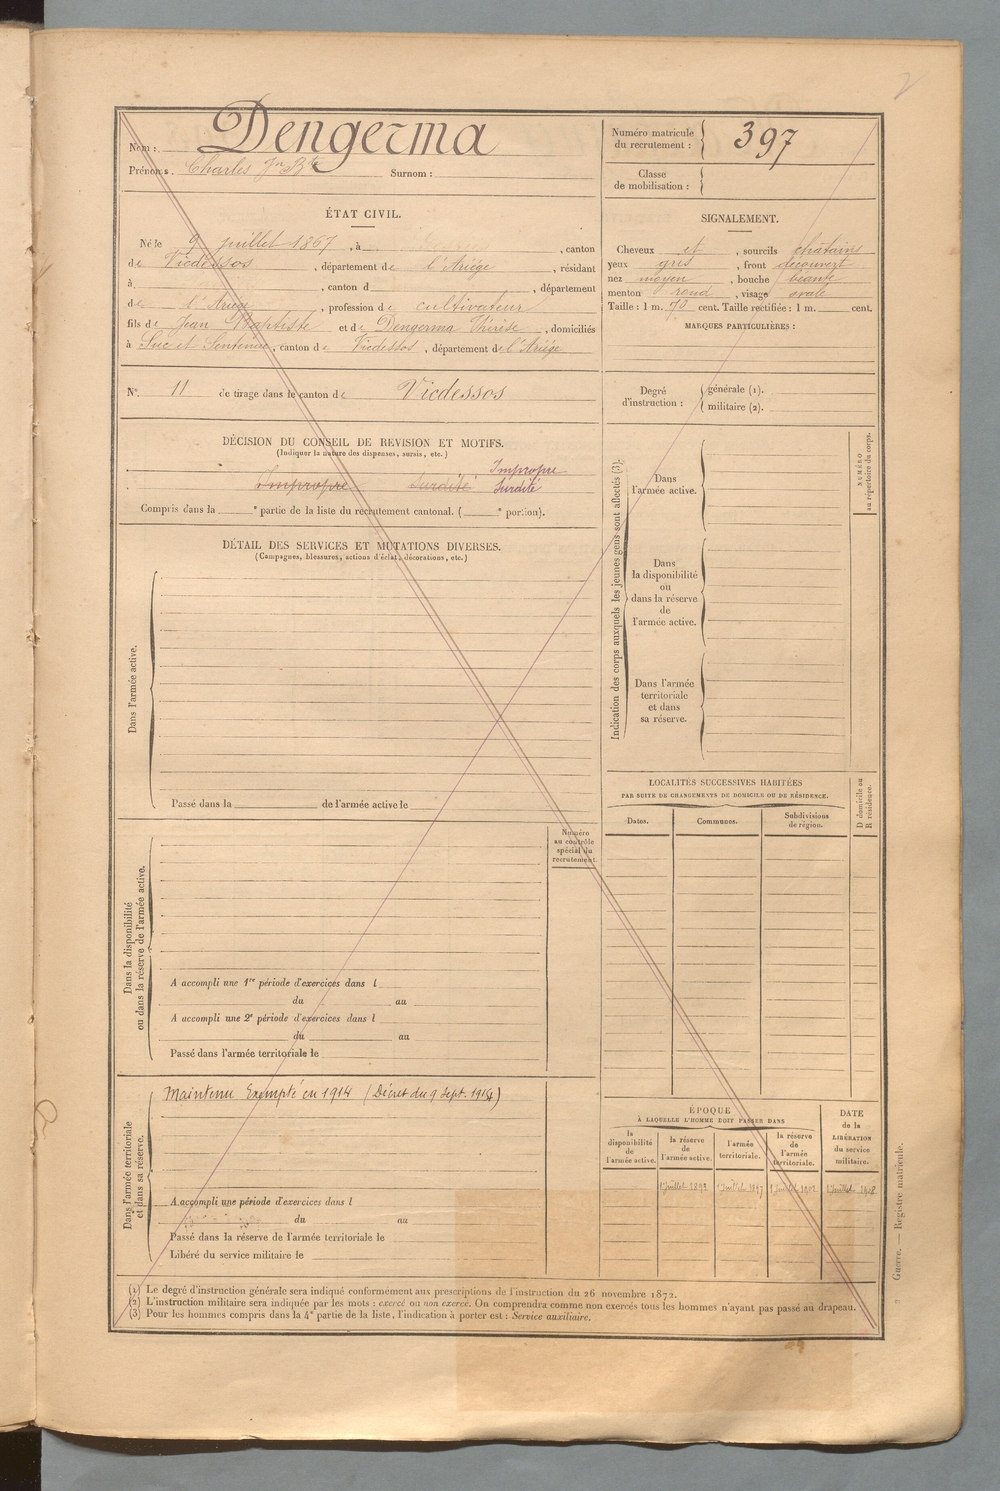 2
Nom : Dengerma
Prénoms. Charles Jn Bte Surnom :
Numéro matricule du recrutement : 397
Classe de mobilisation :
ÉTAT CIVIL.
Né le 9 juillet 1867, à , canton
de Vicdessos, département de l'Ariège, résidant
à , canton d , département
de l'Ariège, profession de cultivateur
fils de Jean Baptiste et de Dengerma Thérèse, domiciliés
à Suc et Sentenac, canton de Vicdessos, département de l'Ariège
SIGNALEMENT.
Cheveux et, sourcils châtains
yeux gris, front découvert
nez moyen, bouche béante
menton rond, visage ovale
Taille : 1 m. 70 cent. Taille rectifiée : 1 m. cent.
MARQUES PARTICULIÈRES :
N° 11 de tirage dans le canton de Vicdessos
Degré d'instruction : générale (1).
militaire (2).
DÉCISION DU CONSEIL DE REVISION ET MOTIFS.
(Indiquer la nature des dispenses, sursis, etc.)
Impropre
Impropre Surdité Surdité
Compris dans la e partie de la liste du recrutement cantonal. ( e portion).
DÉTAIL DES SERVICES ET MUTATIONS DIVERSES.
(Campagnes, blessures, actions d'éclat, décorations, etc.)
Dans l'armée active.
Passé dans la de l'armée active le
Indication des corps auxquels les jeunes gens sont affectés (3):
NUMÉRO
au répertoire du corps.
Dans
l'armée active.
Dans
la disponibilité
ou
dans la réserve
de
l'armée active.
Dans l'armée
territoriale
et dans
sa réserve.
LOCALITÉS SUCCESSIVES HABITÉES
PAR SUITE DE CHANGEMENTS DE DOMICILE OU DE RÉSIDENCE.
D domicile ou
R résidence.
Dates. Communes. Subdivisions de région.
Numéro
au contrôle
spécial du
recrutement.
Dans la disponibilité
ou dans la réserve de l'armée active.
A accompli une 1re période d'exercices dans l
du au
A accompli une 2e période d'exercices dans l
du au
Passé dans l'armée territoriale le
Dans l'armée territoriale
et dans sa réserve.
Maintenu Exempté en 1914 (Décret du 9 Sept. 1914)
A accompli une période d'exercices dans l
du au
Passé dans la réserve de l'armée territoriale le
Libéré du service militaire le
ÉPOQUE
À LAQUELLE L'HOMME DOIT PASSER DANS
la
disponibilité
de
l'armée active.
la réserve
de
l'armée active.
l'armée
territoriale.
la réserve
de
l'armée
territoriale.
DATE
de la
LIBÉRATION
du service
militaire.
1 juillet 1892 1 juillet 1902 1 juillet 1908
Guerre. — Registre matricule.
(1) Le degré d'instruction générale sera indiqué conformément aux prescriptions de l'instruction du 26 novembre 1872.
(2) L'instruction militaire sera indiquée par les mots : exercé ou non exercé. On comprendra comme non exercés tous les hommes n'ayant pas passé au drapeau.
(3) Pour les hommes compris dans la 4e partie de la liste, l'indication à porter est : Service auxiliaire.